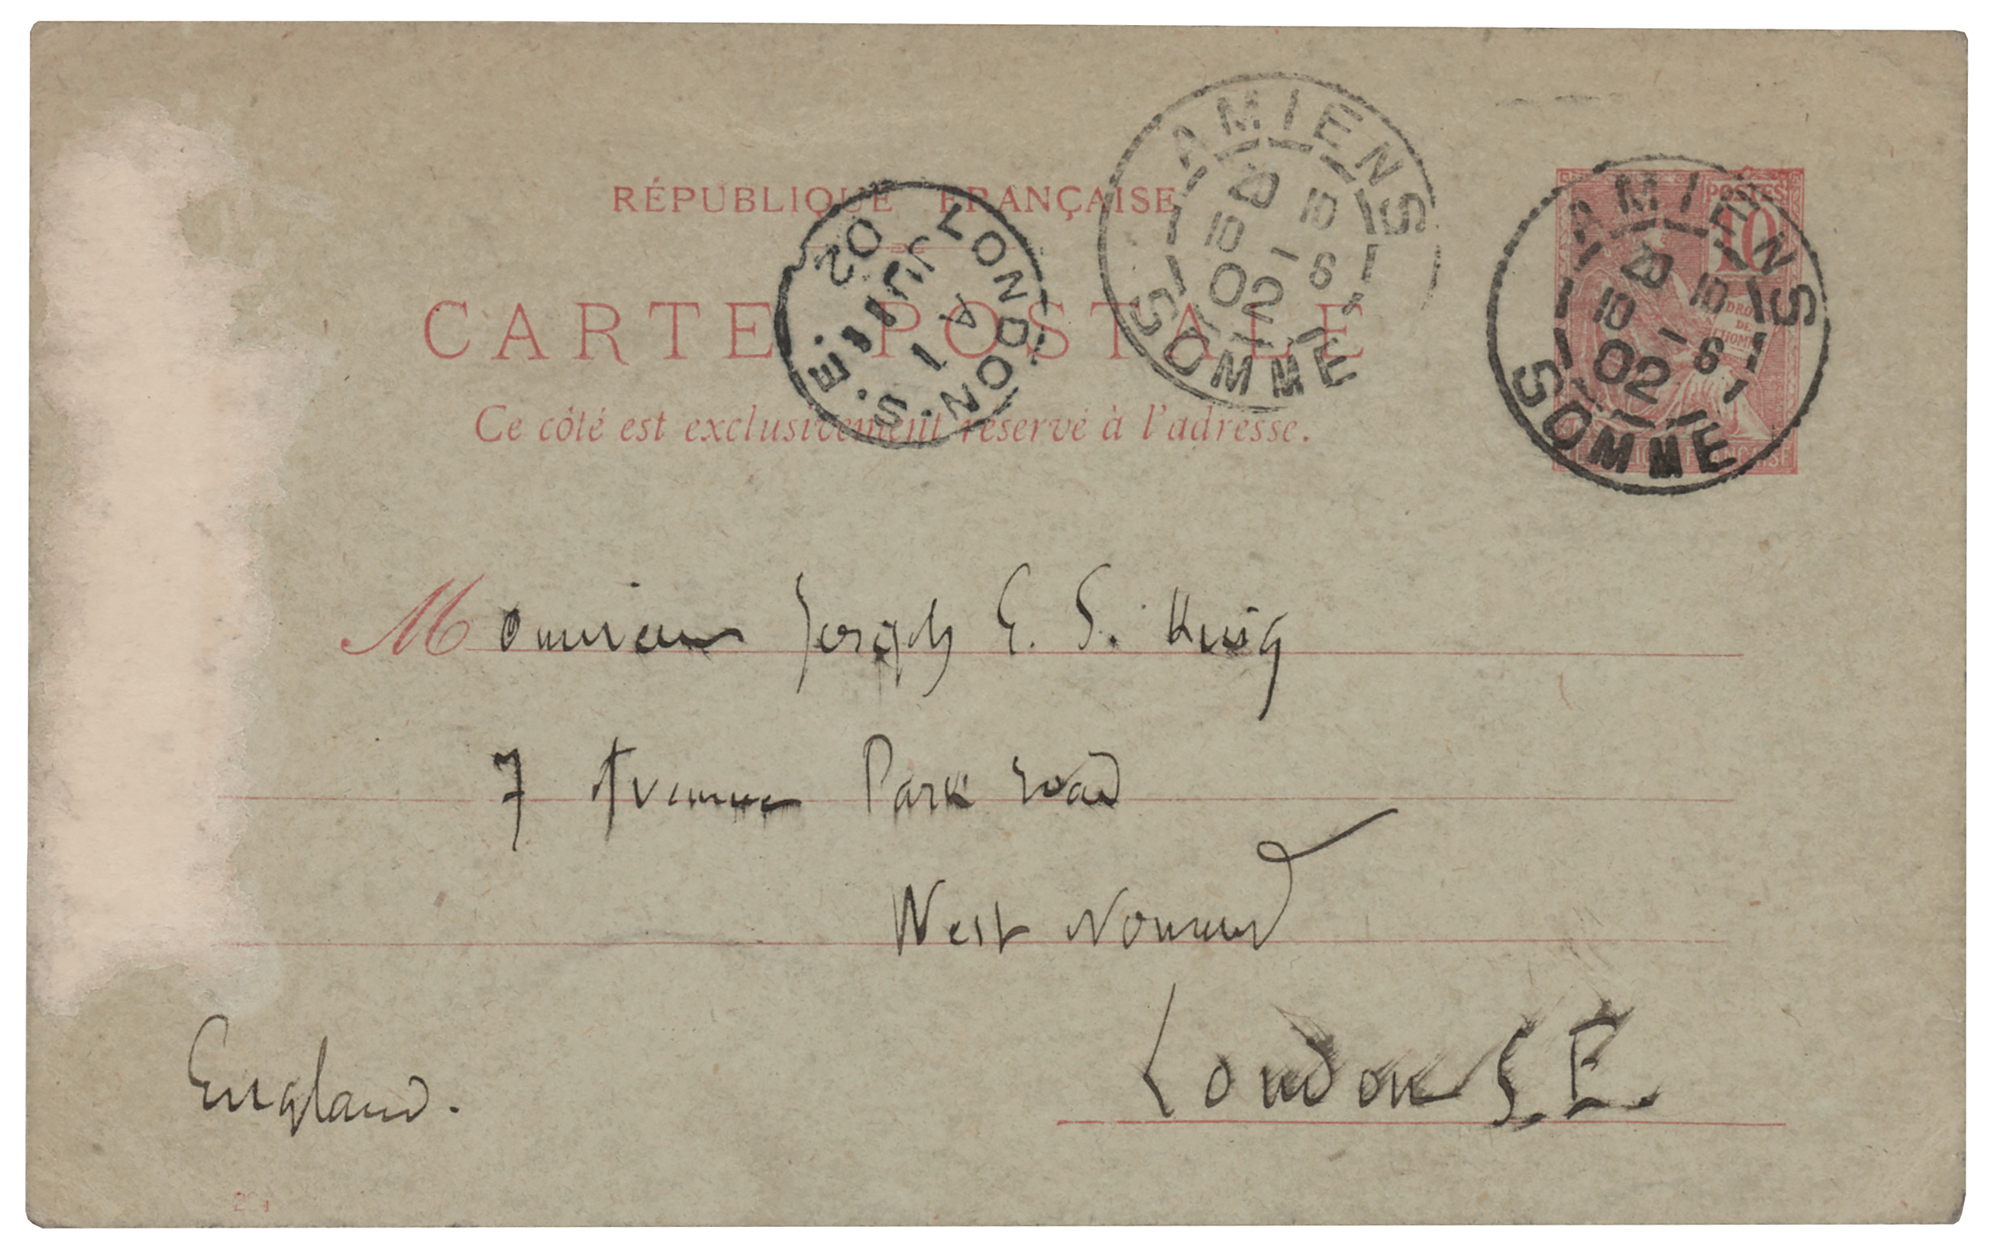 RÉPUBLIQUE FRANÇAISE
CARTE POSTALE
Ce côté est exclusivement réservé à l'adresse.
LONDON. S.E.
A
1
JU 11
02
AMIENS
20 10
10 - 6
02
SOMME
POSTES
10
DROITS
DE
L'HOMME
AMIENS
20 10
10 - 6
02
SOMME
RÉPUBLIQUE FRANÇAISE
Monsieur Joseph E. S. King
7 Avenue Park road
West Norwood
London S. E.
England.